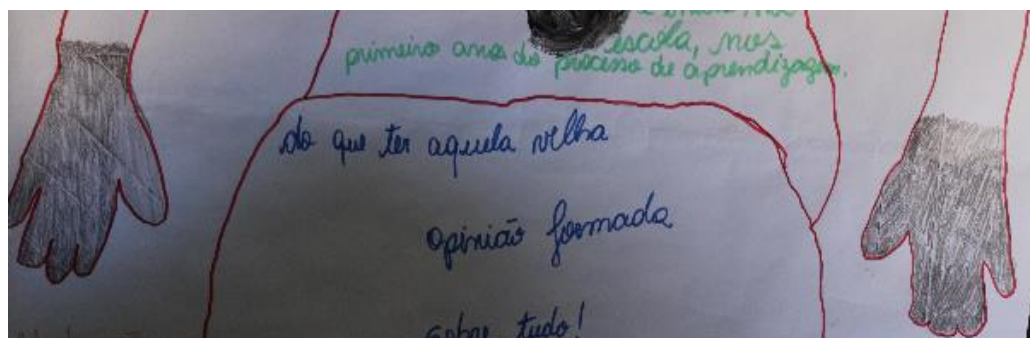 escola, nos
primeiro anos do processo de aprendizagem.
do que ter aquela velha
opinião formada
sobre tudo!